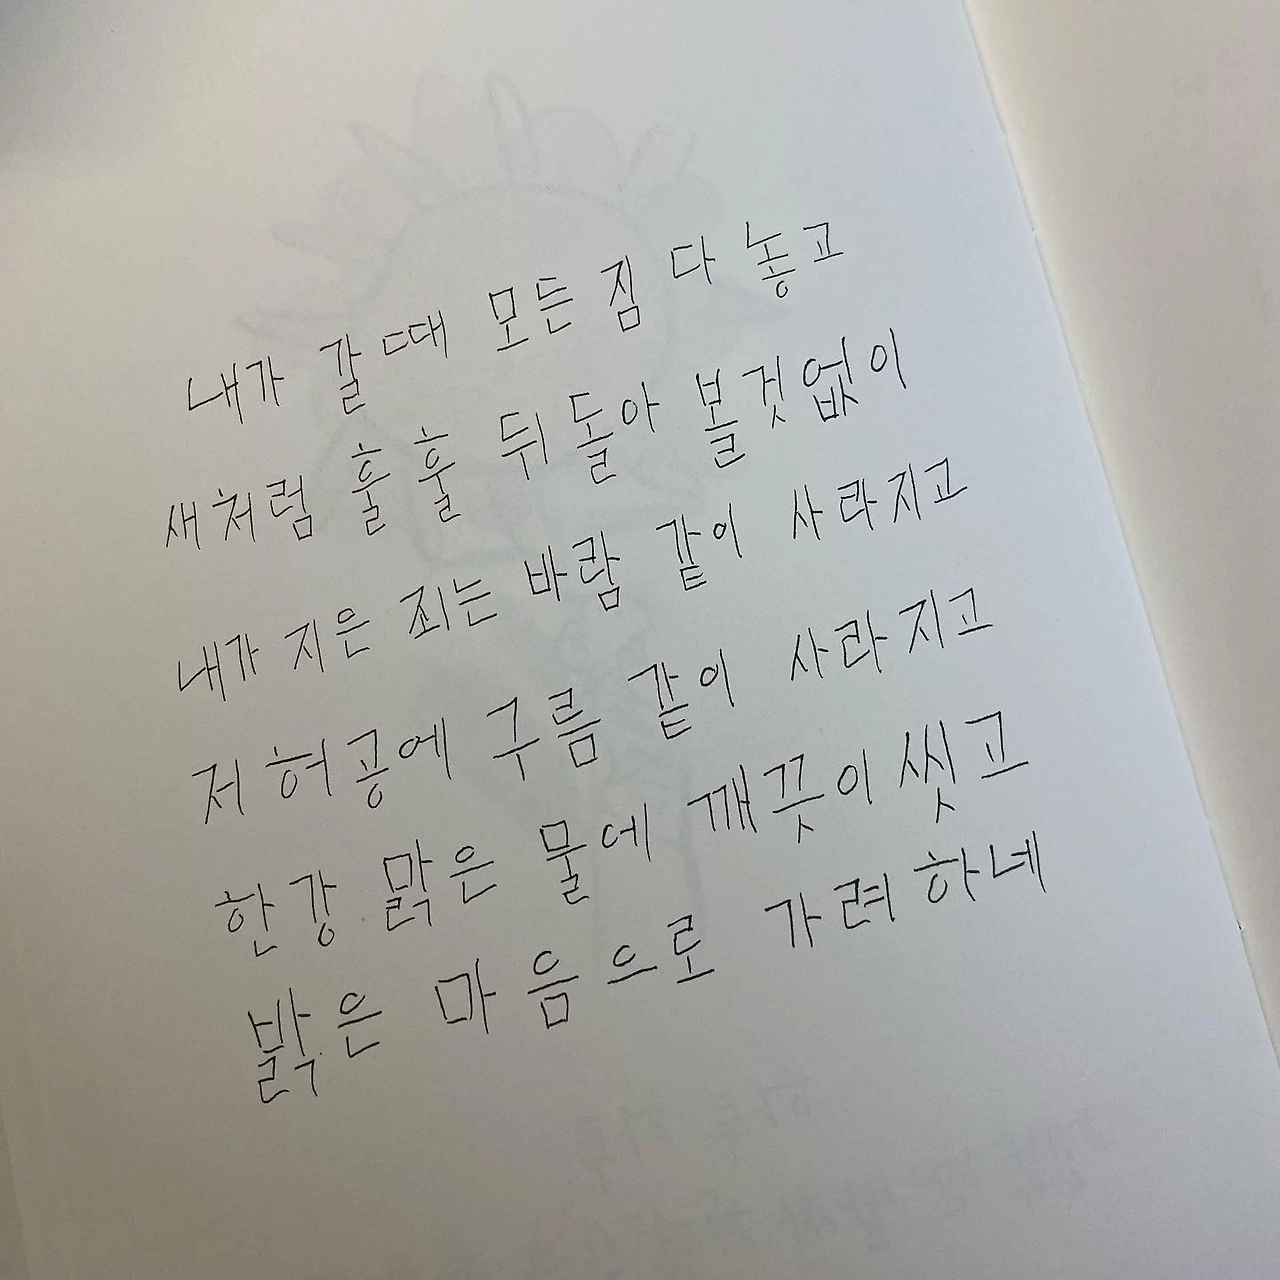 내가 갈 때 모든 짐 다 놓고
새처럼 훌훌 뒤돌아 볼것없이
내가 지은 죄는 바람 같이 사라지고
저 허공에 구름 같이 사라지고
한강 맑은 물에 깨끗이 씻고
밝은 마음으로 가려하네